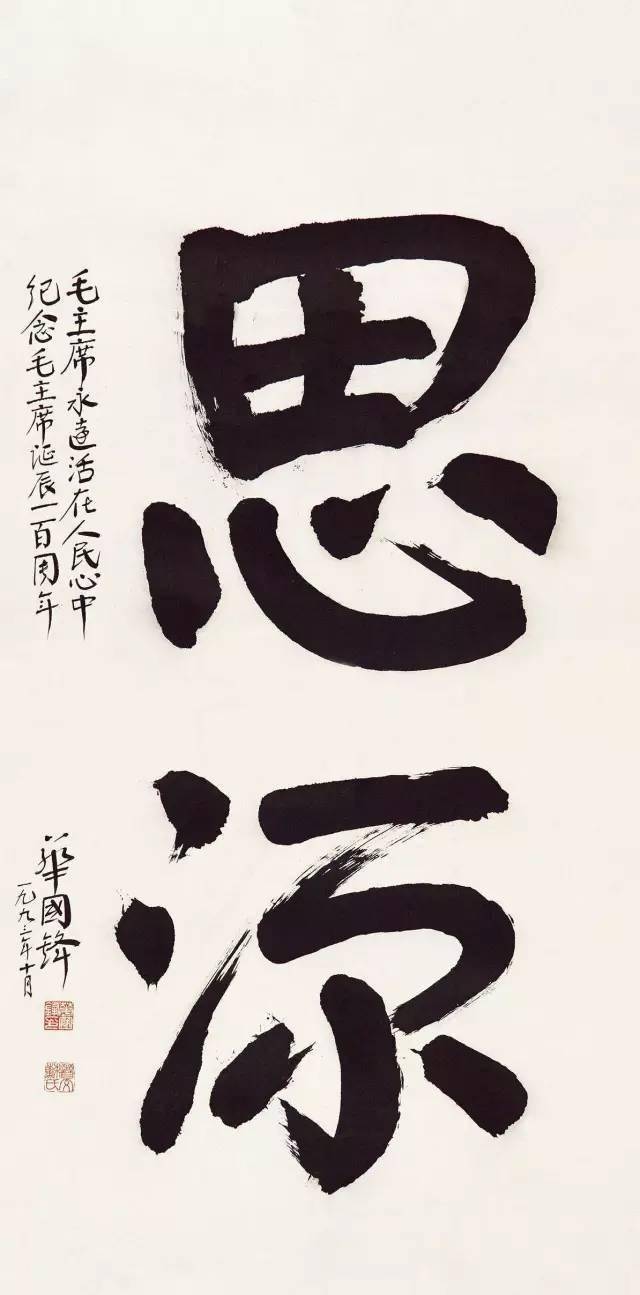 思源
毛主席永遠活在人民心中
纪念毛主席诞辰一百周年
華國鋒
一九九三年十月